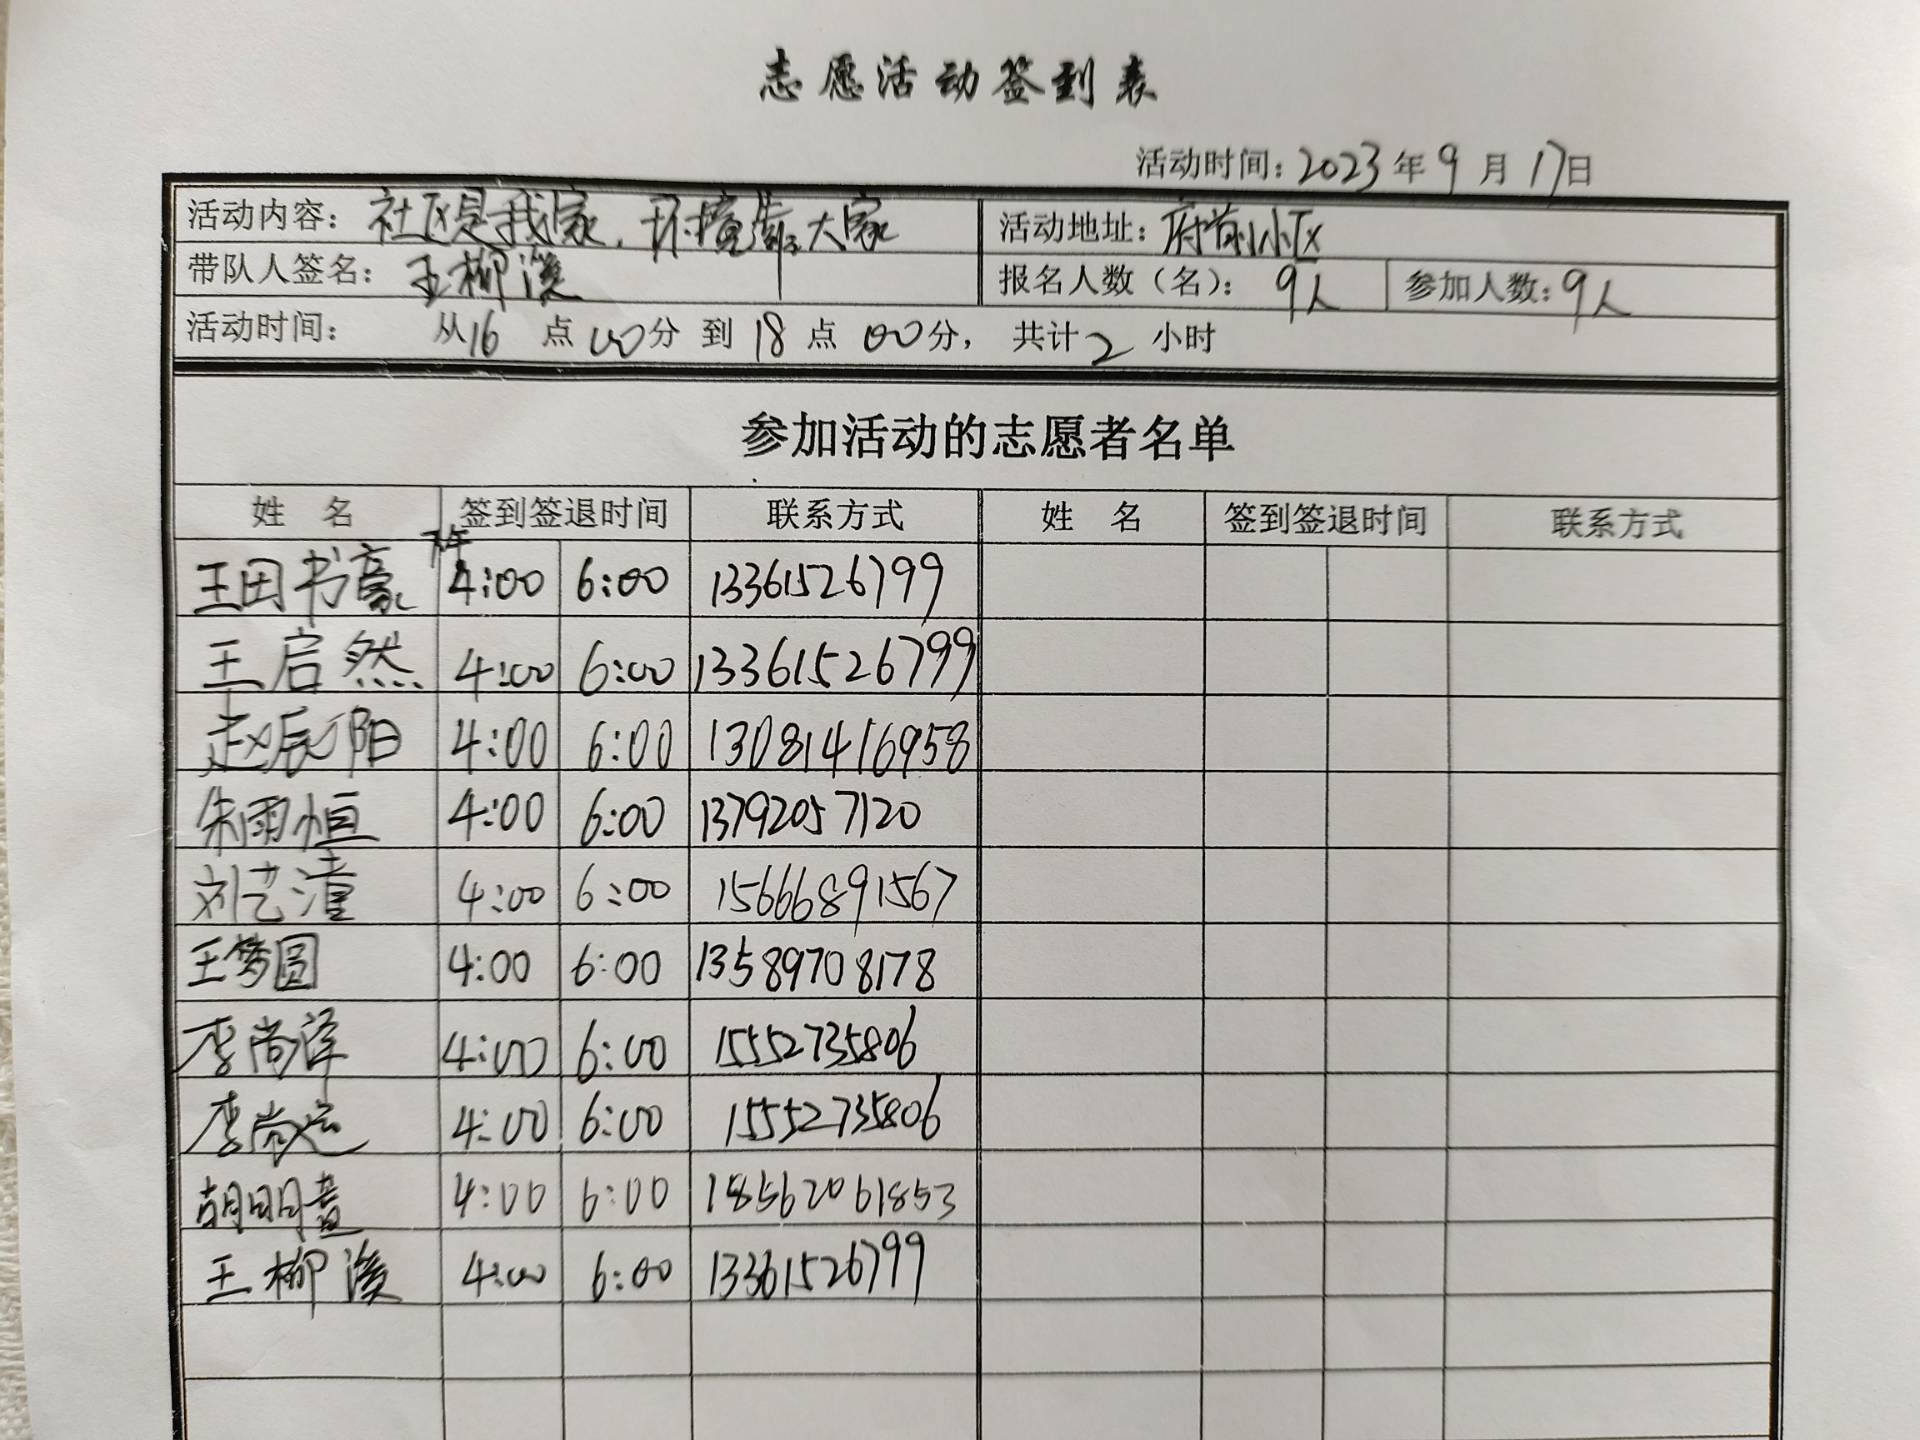 志愿活动签到表
活动时间：2023年9月17日
活动内容：社区是我家，环境靠大家 活动地址：府前小区
带队人签名：王柳溪 报名人数（名）：9人 参加人数：9人
活动时间： 从16点00分到18点00分，共计2小时
参加活动的志愿者名单
姓 名 签到签退时间 联系方式 姓 名 签到签退时间 联系方式
下午
王田书豪 4:00 6:00 13361526799
王启然 4:00 6:00 13361526799
赵辰阳 4:00 6:00 13081416958
朱雨恒 4:00 6:00 13792057120
刘艺潼 4:00 6:00 15666891567
王梦圆 4:00 6:00 13589708178
李尚泽 4:00 6:00 15552735806
李尚运 4:00 6:00 15552735806
胡明 4:00 6:00 18562061853
王柳溪 4:00 6:00 13361526799